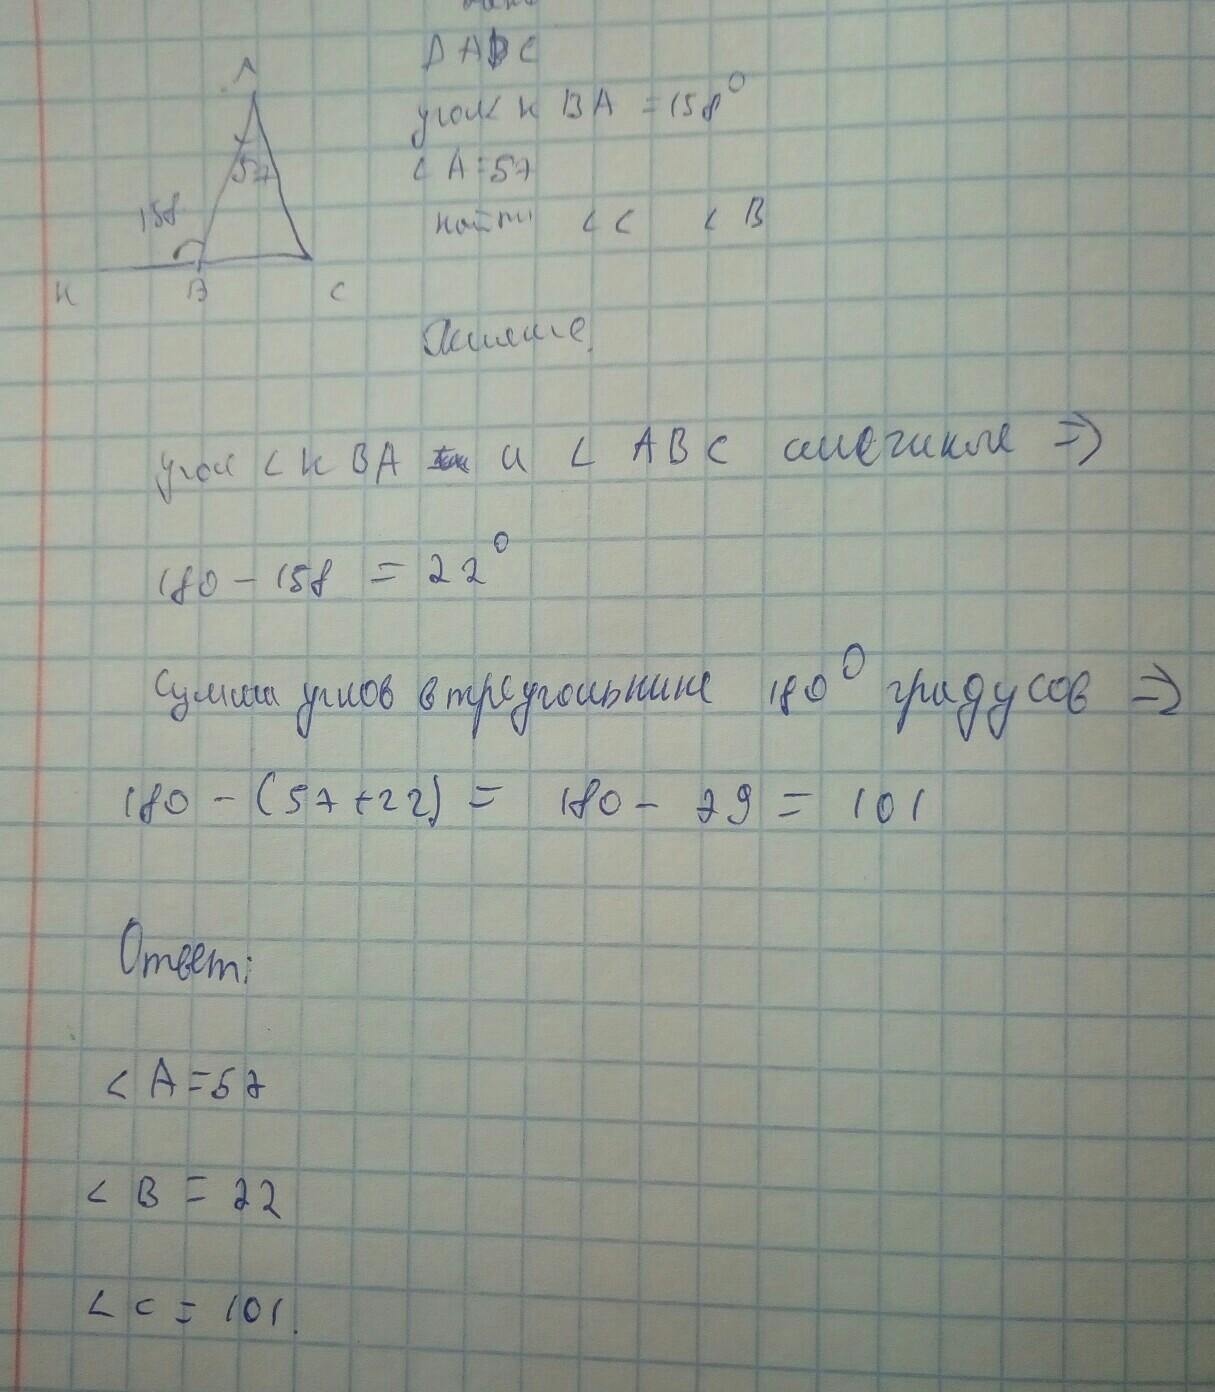 Δ ABC
угол K BA = 158°
∠ A = 57
найти ∠ C ∠ B
A
57
158
K B C
Решение
угол ∠ K BA и ∠ ABC смежные =>
180 - 158 = 22°
Сумма углов в треугольнике 180° градусов =>
180 - (57 + 22) = 180 - 79 = 101
Ответ:
∠ A = 57
∠ B = 22
∠ C = 101.